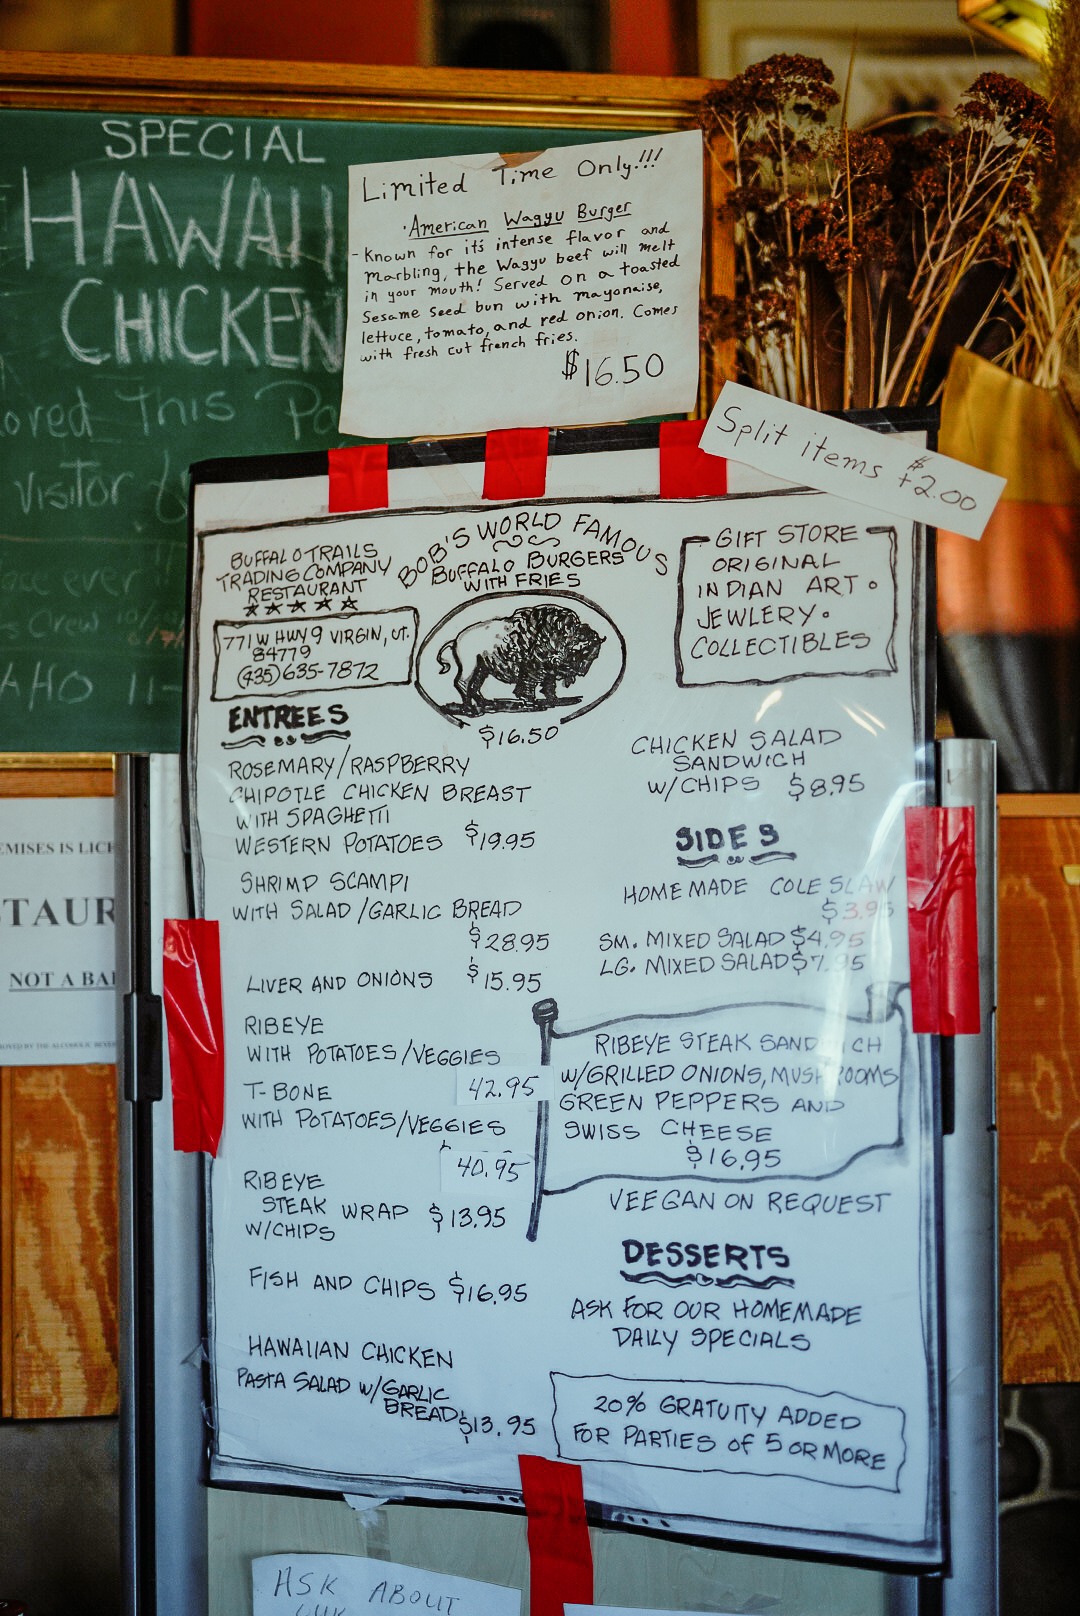 SPECIAL
HAWAII
CHICKEN
This
Visitor
ace ever!!
Crew
AHO 11-
Limited Time Only!!!
American Wagyu Burger
- Known for it's intense flavor and
marbling, the Wagyu beef will melt
in your mouth! Served on a toasted
Sesame seed bun with mayonaise,
lettuce, tomato, and red onion. Comes
with fresh cut french fries.
$16.50
Split items $+2.00
BUFFALO TRAILS
TRADING COMPANY
RESTAURANT
771 W HWY 9 VIRGIN, UT.
84779
(435) 635-7872
BOB'S WORLD FAMOUS
BUFFALO BURGERS
WITH FRIES
$16.50
GIFT STORE
ORIGINAL
INDIAN ART •
JEWLERY •
COLLECTIBLES
ENTREES
ROSEMARY/RASPBERRY
CHIPOTLE CHICKEN BREAST
WITH SPAGHETTI
WESTERN POTATOES $19.95
SHRIMP SCAMPI
WITH SALAD/GARLIC BREAD
$28.95
LIVER AND ONIONS $15.95
RIBEYE
WITH POTATOES/VEGGIES
42.95
T-BONE
WITH POTATOES/VEGGIES
40.95
RIBEYE
STEAK WRAP $13.95
W/CHIPS
FISH AND CHIPS $16.95
HAWAIIAN CHICKEN
PASTA SALAD W/GARLIC
BREAD $13.95
CHICKEN SALAD
SANDWICH
W/CHIPS $8.95
SIDES
HOMEMADE COLE SLAW
$3.95
SM. MIXED SALAD $4.95
LG. MIXED SALAD $7.95
RIBEYE STEAK SANDWICH
W/GRILLED ONIONS, MUSHROOMS
GREEN PEPPERS AND
SWISS CHEESE
$16.95
VEEGAN ON REQUEST
DESSERTS
ASK FOR OUR HOMEMADE
DAILY SPECIALS
20% GRATUITY ADDED
FOR PARTIES of 5 OR MORE
EMISES IS LICE
STAUR
NOT A BAR
ROVED BY THE ALCOHOLIC BEVER
ASK ABOUT